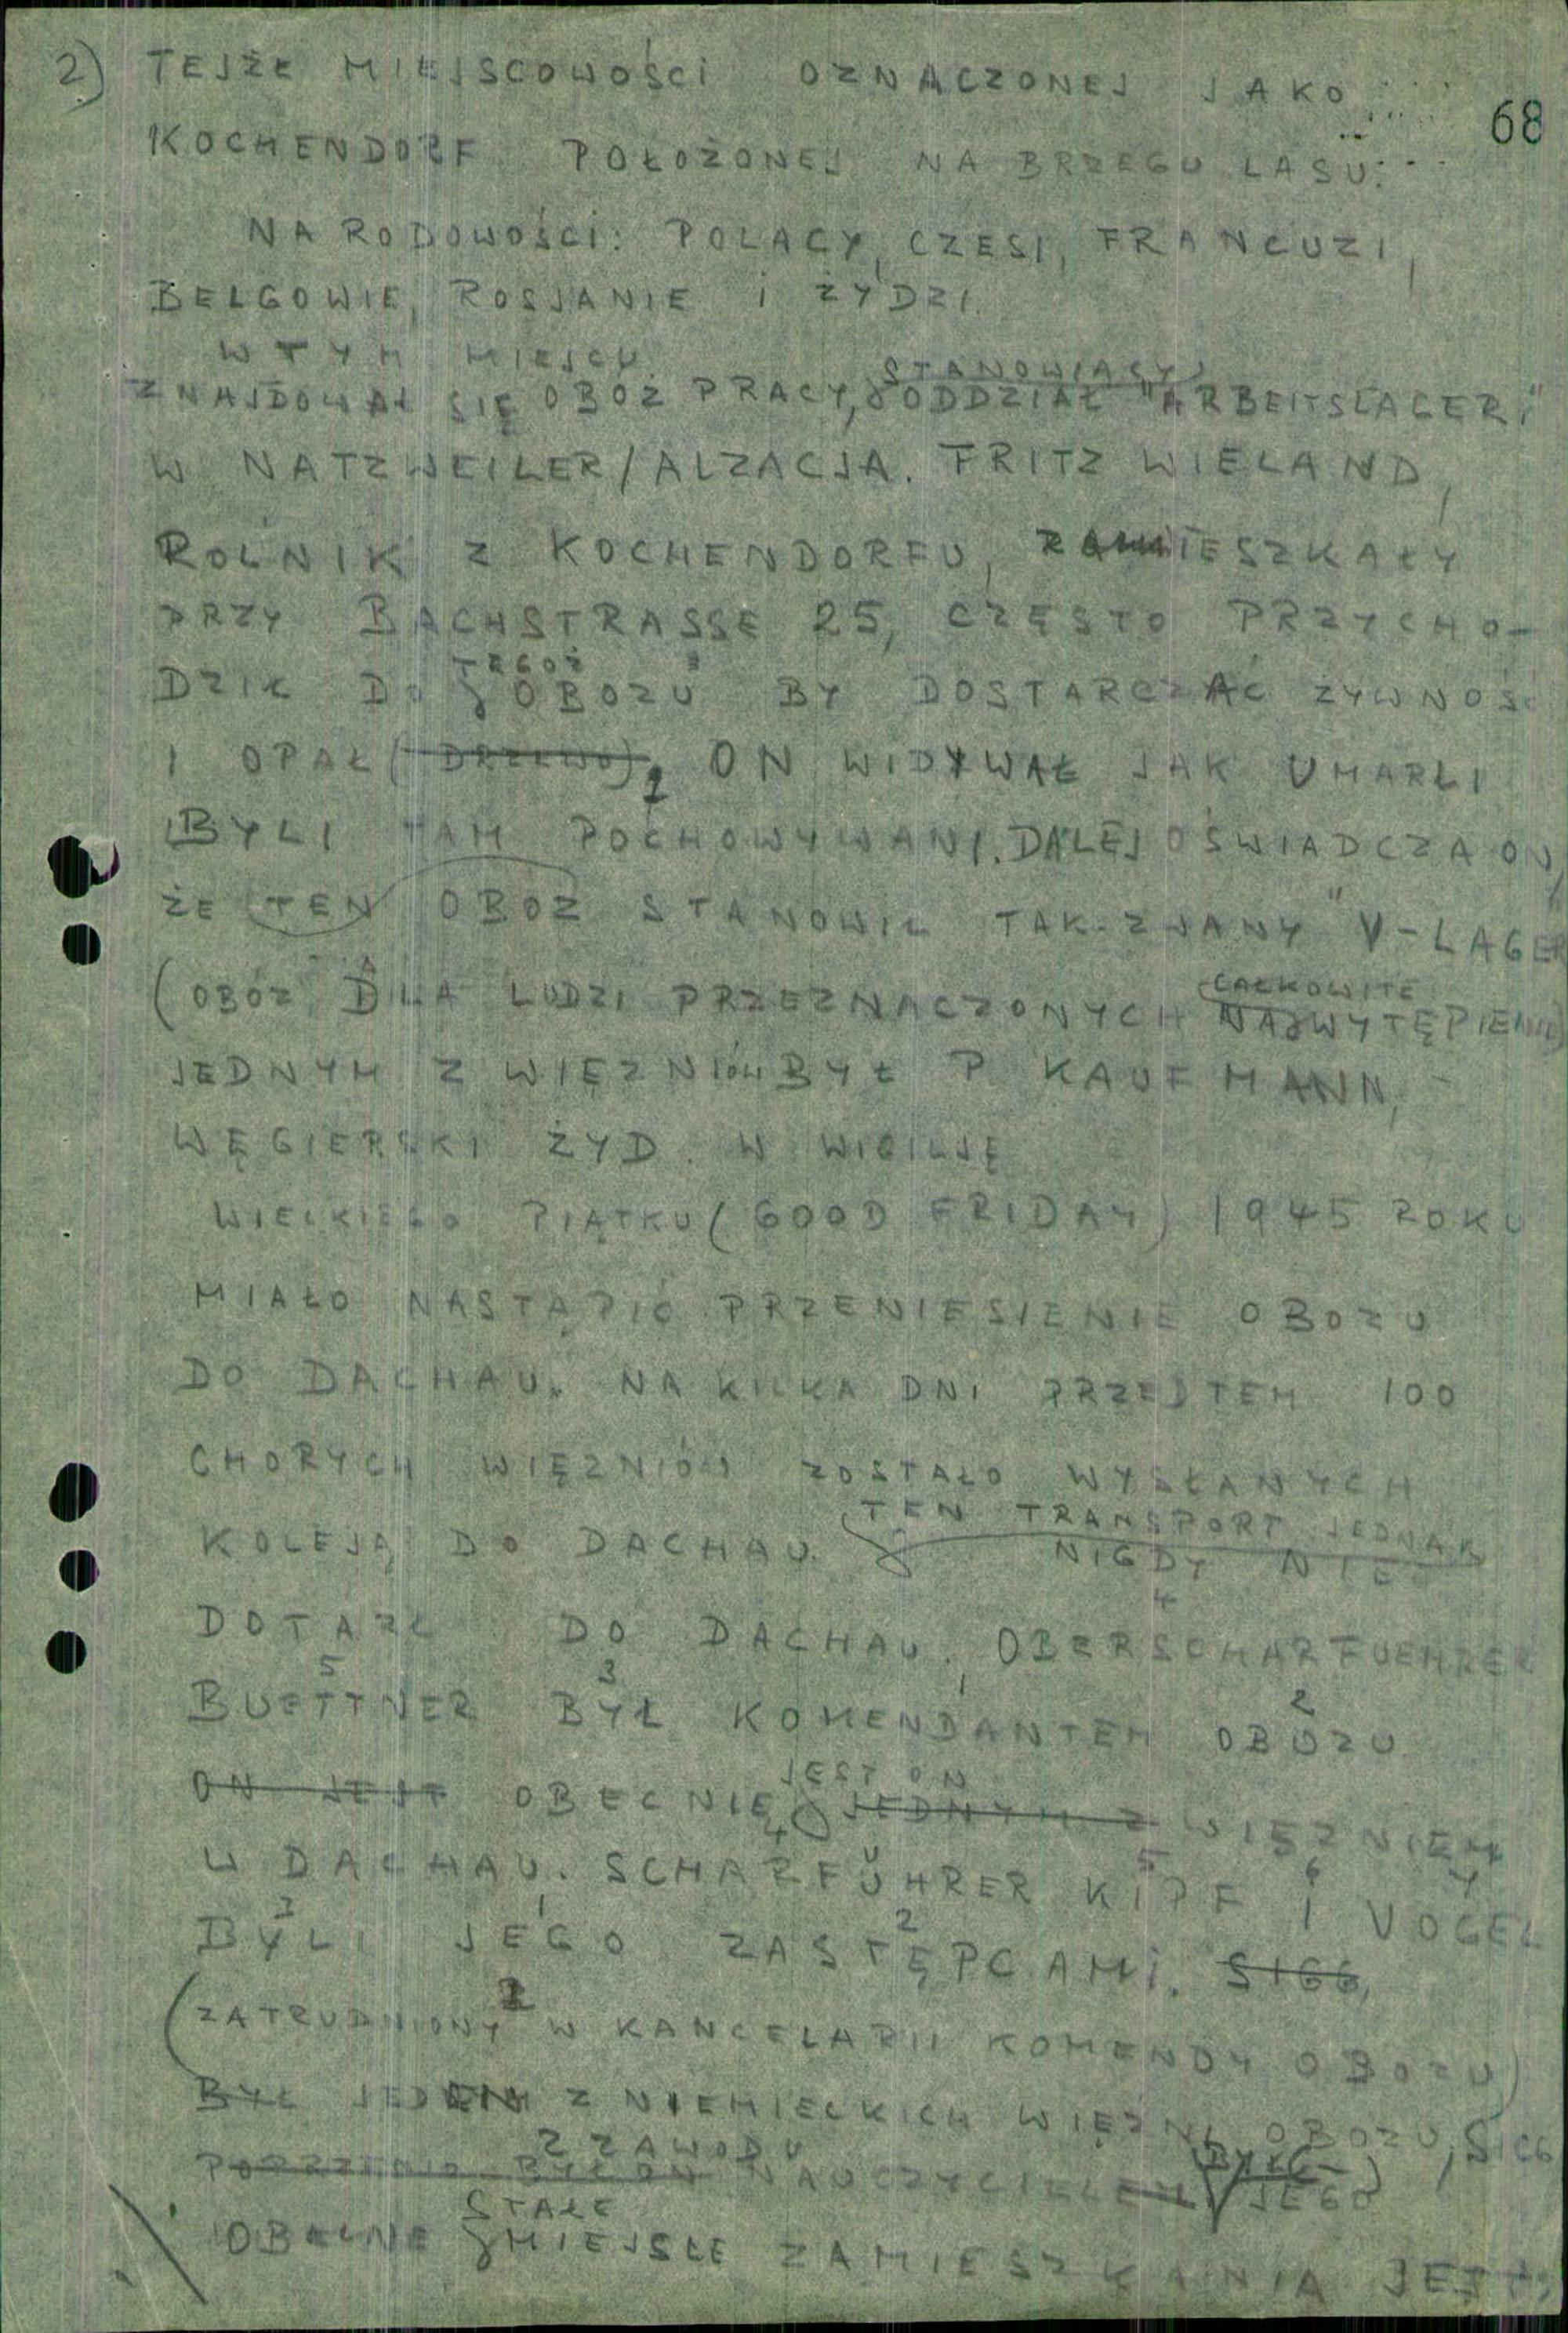 2) TEJŻE MIEJSCOWOŚCI OZNACZONEJ JAKO
68
KOCHENDORF POŁOŻONEJ NA BRZEGU LASU.
NARODOWOŚCI: POLACY, CZESI, FRANCUZI,
BELGOWIE, ROSJANIE i ŻYDZI.
W TYM MIEJSCU
STANOWIĄCY
ZNAJDOWAŁ SIĘ OBOZ PRACY, ODDZIAŁ "ARBEITSLAGER"
W NATZWEILER/ALZACJA. FRITZ WIELAND,
ROLNIK Z KOCHENDORFU, ZAMIESZKAŁY
PRZY BACHSTRASSE 25, CZĘSTO PRZYCHO-
TEGOŻ
DZIŁ DO OBOZU BY DOSTARCZAĆ ŻYWNOŚĆ
I OPAŁ (DRZEWO), ON WIDYWAŁ JAK UMARLI
BYLI TAM POCHOWYWANI. DALEJ OŚWIADCZA ON,
ŻE TEN OBOZ STANOWIŁ TAK ZWANY "V-LAGER
(OBÓZ DLA LUDZI PRZEZNACZONYCH NA WYTĘPIENIE)
CAŁKOWITE
JEDNYM Z WIĘŹNIÓW BYŁ P KAUFMANN,
WĘGIERSKI ŻYD. W WIGILJĘ
WIELKIEGO PIĄTKU (GOOD FRIDAY) 1945 ROKU
MIAŁO NASTĄPIĆ PRZENIESIENIE OBOZU
DO DACHAU. NA KILKA DNI PRZEDTEM 100
CHORYCH WIĘŹNIÓW ZOSTAŁO WYSŁANYCH
TEN TRANSPORT JEDNAK
KOLEJĄ DO DACHAU. NIGDY NIE
4
DOTARŁ DO DACHAU. OBERSCHARFUEHRER
5 3 1 2
BUETTNER BYŁ KOMENDANTEM OBOZU
JEST ON
ON JEST OBECNIE JEDNYM Z WIĘŹNIEM
4 5 6 7
W DACHAU. SCHARFÜHRER KIPF I VOGEL
3 1 2
BYLI JEGO ZASTĘPCAMI. SIGG,
2
(ZATRUDNIONY W KANCELARII KOMENDY OBOZU)
BYŁ JEDEN Z NIEMIECKICH WIĘŹNI OBOZU, SIGG
Z ZAWODU
BYŁ ON NAUCZYCIELEM JEGO
STAŁE
OBECNE MIEJSCE ZAMIESZKANIA JEST: